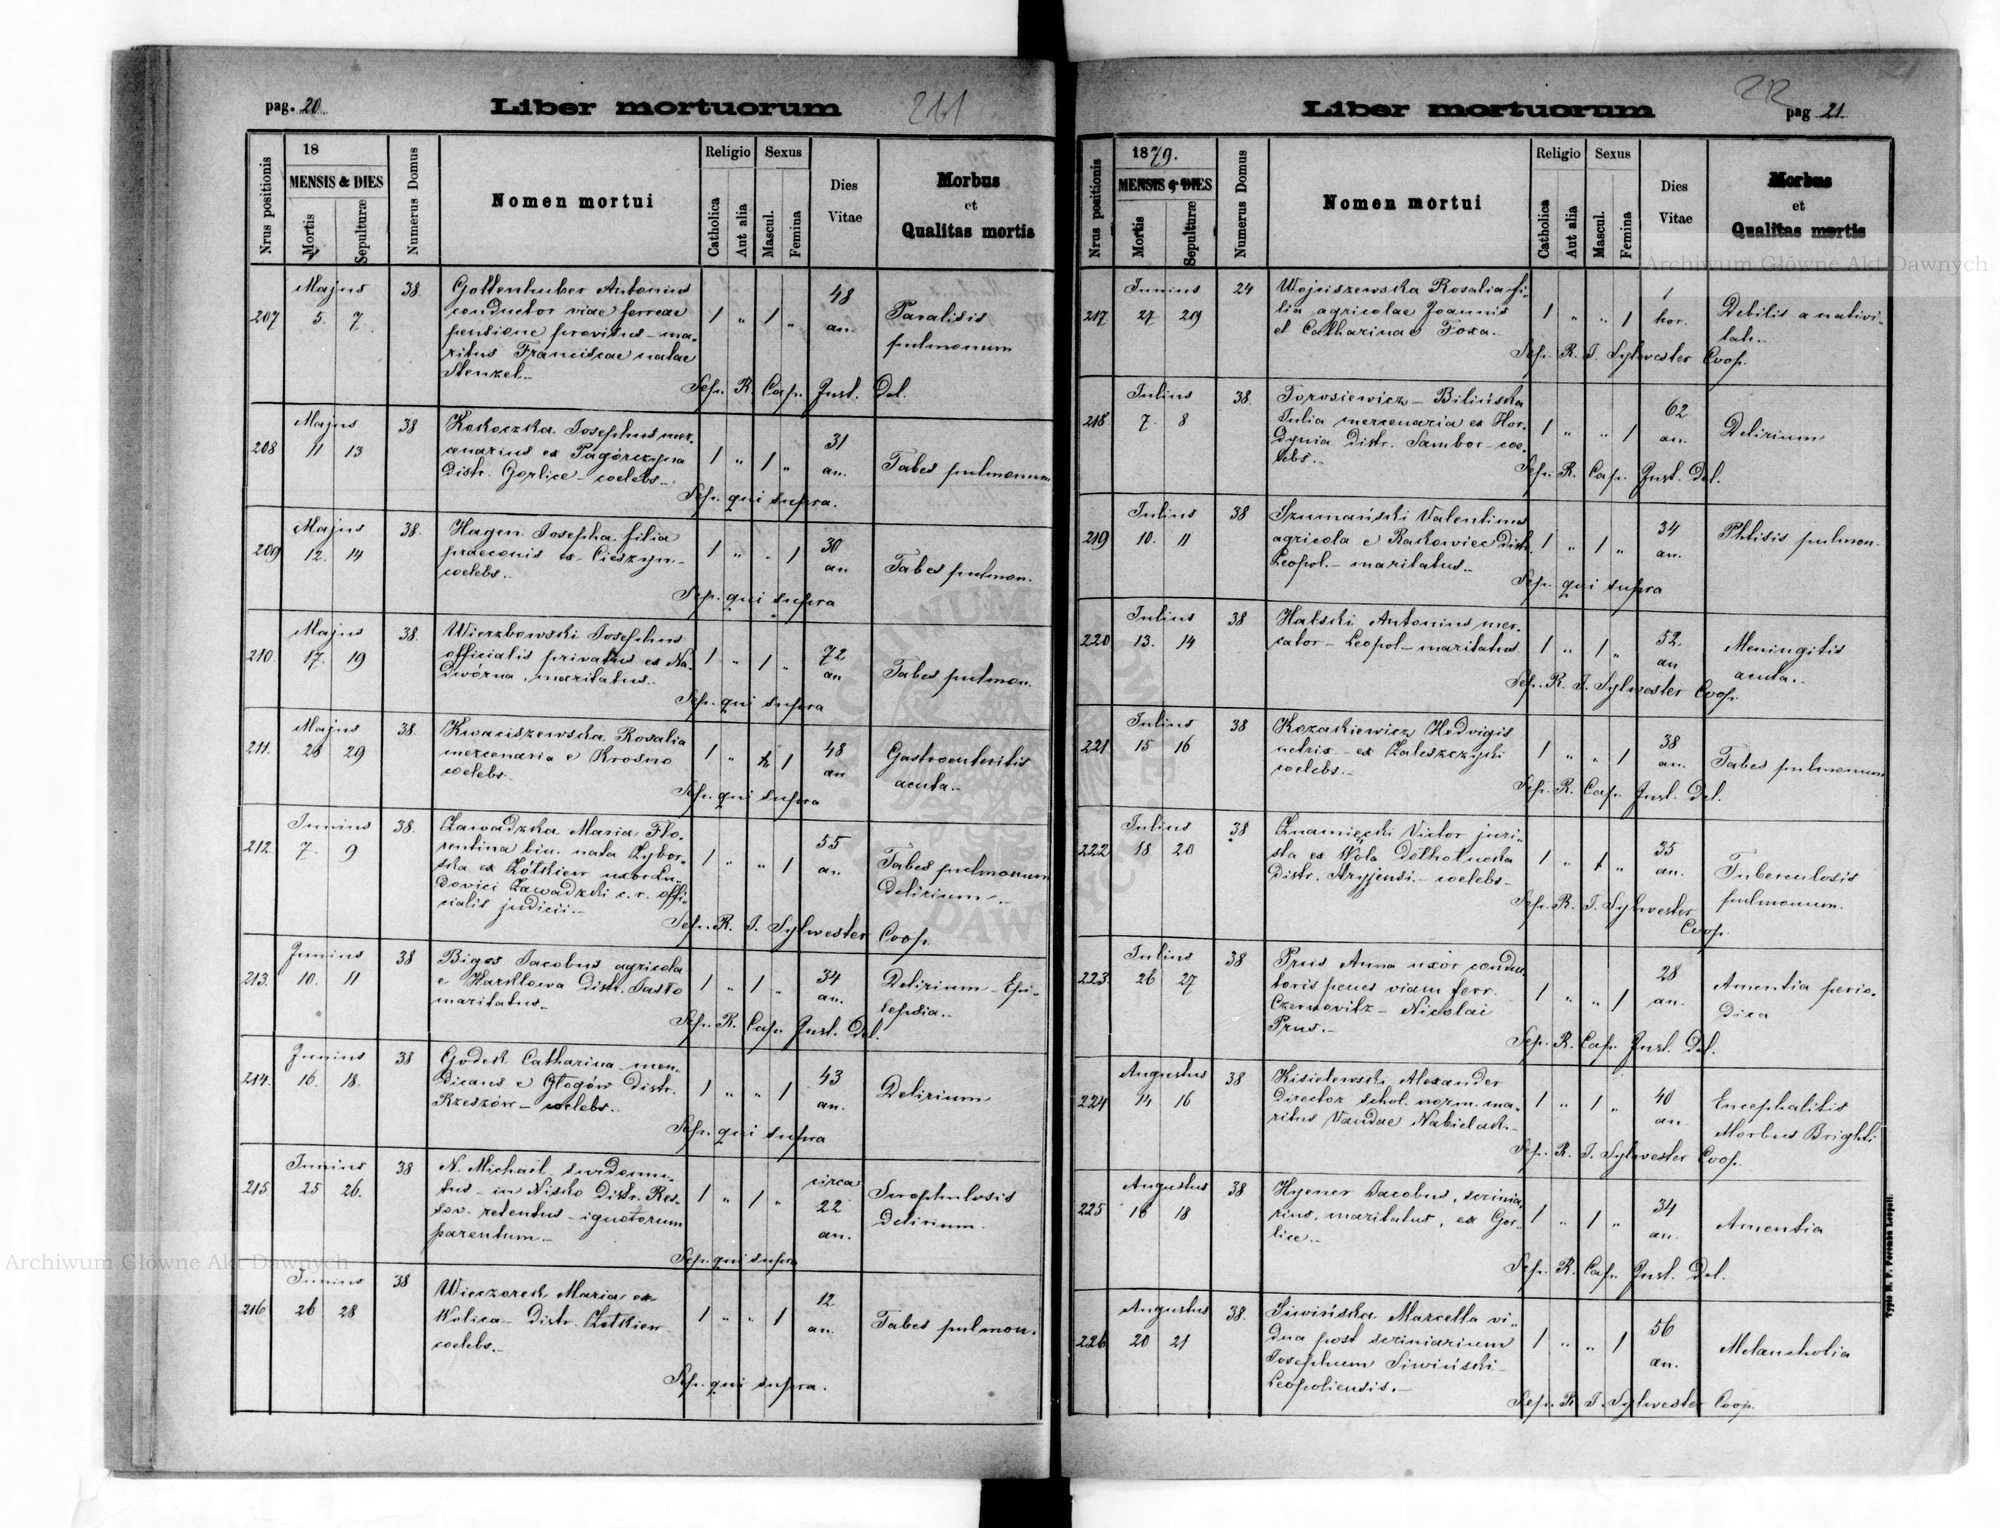 pag. 20
Liber mortuorum
211
Nrus positionis
18
MENSIS & DIES
Mortis
Sepulturæ
Numerus Domus
Nomen mortui
Religio
Catholica
Aut alia
Sexus
Mascul.
Femina
Dies
Vitae
Morbus
et
Qualitas mortis
207
Majus
5. 7.
38.
Gottenhuber Antonius
conductor viae ferreae
pensione provitus - ma-
ritus Franciscae natae
Stenzel.-
1 " 1 "
48
an.
Paralisis
pulmonum
Sep. R. Cap. Just. Del.
208
Majus
11 13
38
Kokoczka Josephus mer-
cenarius ex Pagórzyna
Distr. Gorlice - coelebs.-
1 " 1 "
31
an.
Tabes pulmonum
Sep. qui supra.
209
Majus
12. 14
38.
Hagen Josepha filia
praeconis ex Cieszyn -
coelebs.-
1 " " 1
30
an
Tabes pulmon.
Sep. qui supra
210.
Majus
17. 19
38.
Wierzbowski Josephus
officialis privatus ex Na-
dwórna, maritatus.-
1 " 1 "
72
an
Tabes pulmon.
Sep. qui supra
211.
Majus
28 29
38.
Kwaciszewska Rosalia
mercenaria e Krosno
coelebs.-
1 " 1
48
an
Gastroenteritis
acuta.-
Sep. qui supra
212.
Junius
7. 9
38.
Zawadzka Maria Flo-
rentina bin. nata Zybor-
ska ex Żółkiew uxor Lu-
dovici Zawadzki c. r. offi-
cialis judicii.-
1 " " 1
55
an.
Tabes pulmonum
Delirium.-
Sep. R. J. Sylwester Coop.
213.
Junius
10. 11
38
Bigos Jacobus agricola
e Harklowa Distr. Jasło
maritatus.-
1 " 1 "
34
an.
Delirium - Epi-
lepsia.-
Sep. R. Cap. Just. Del.
214.
Junius
16. 18.
38
Godek Catharina men-
dicans e Głogów Distr.
Rzeszów - coelebs.-
1 " " 1
43
an.
Delirium
Sep. qui supra
215
Junius
25 26.
38
N. Michael surdomu-
tus - in Nisko Distr. Res-
sov. retentus - ignotorum
parentum.-
1 " 1 "
circa
22
an.
Scrophulosis
delirium.
Sep. qui supra
216
Junius
26 28
38
Wieczorek Maria ex
Wolica - Distr. Żółkiew
coelebs.-
1 " " 1
12
an.
Tabes pulmon.
Sep. qui supra.
Liber mortuorum
pag 21.
Nrus positionis
1879.
MENSIS & DIES
Mortis
Sepulturæ
Numerus Domus
Nomen mortui
Religio
Catholica
Aut alia
Sexus
Mascul.
Femina
Dies
Vitae
Morbus
et
Qualitas mortis
217
Junius
27 29
24
Wojciszewska Rosalia fi-
lia agricolae Joannis
et Catharinae Foxa.-
1 " " 1
1
hor.
Debilis a nativi-
tate.-
Sep. R. J. Sylwester Coop.
218.
Julius
7. 8
38.
Torosiewicz - Bilińska
Julia mercenaria ex Hor-
dynia Distr. Sambor - coe-
lebs.-
1 " " 1
62
an.
Delirium
Sep. R. Cap. Just. Del.
219
Julius
10. 11
38
Szumański Valentinus
agricola e Rakowiec Distr.
Leopol. - maritatus.-
1 " 1 "
34
an.
Phtisis pulmon.
Sep. qui supra
220
Julius
13. 14
38
Halski Antonius mer-
cator - Leopol - maritatus
1 " 1 "
52.
an
Meningitis
acuta.-
Sep. R. J. Sylwester Coop.
221
Julius
15 16
38
Kozakiewicz Hedvigis
netrix - ex Zaleszczyki
coelebs.-
1 " " 1
38
an.
Tabes pulmonum
Sep. R. Cap. Just. Del.
222
Julius
18 20
38
Znamięcki Victor juri-
sta ex Wola Dołhołucka
Distr. Stryjensi. - coelebs -
1 " 1 "
35
an.
Tuberculosis
pulmonum.
Sep. R. J. Sylwester
Coop.
223.
Julius
26 27
38
Prus Anna uxor condu-
ctoris penes viam ferr.
Czernovitz - Nicolai
Prus.-
1 " " 1
28
an.
Amentia perio-
dica
Sep. R. Cap. Just. Del.
224
Augustus
14 16
38
Kisielewski Alexander
Director schol. norm. ma-
ritus Vandae Nabielak.-
1 " 1 "
40
an.
Encephalitis
Morbus Brighti
Sep. R. J. Sylwester Coop.
225
Augustus
16 18
38
Hyener Jacobus, scrinia-
rius, maritatus, ex Gor-
lice.-
1 " 1 "
34
an.
Amentia
Sep. R. Cap. Just. Del.
226
Augustus
20 21
38.
Siwińska Marcella vi-
dua post scriniarium
Josephum Siwiński -
Leopoliensis.-
1 " " 1
56
an.
Melancholia
Sep. R. J. Sylwester Coop.
Typis M. F. Poremba Leopoli.
Archiwum Główne Akt Dawnych
Archiwum Główne Akt Dawnych